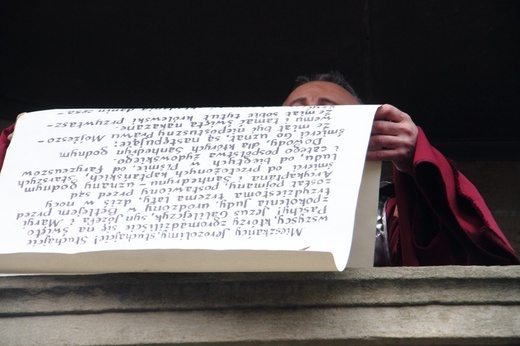 Mieszkańcy Jerozolimy, słuchajcie! Słuchajcie
wszyscy, którzy zgromadziliście się na święto
Paschy! Jezus Galilejczyk, syn Józefa i Maryi
z pokolenia Judy, urodzony w Betlejem przed
trzydziestoma trzema laty, dziś w nocy
został pojmany, postawiony przed sąd
Arcykapłana i Sanhedrynu - uznany godnym
śmierci od przełożonych kapłańskich, Starszych
Ludu, od biegłych w Piśmie, od Faryzeuszów
i całego pospólstwa żydowskiego.
Dowody, dla których Sanhedryn godnym
śmierci Go uznał, są następujące:
że miał być nieposłuszny Prawu Mojżeszo-
wemu i łamać święta nakazane.
że miał sobie tytuł królewski przywłasz-